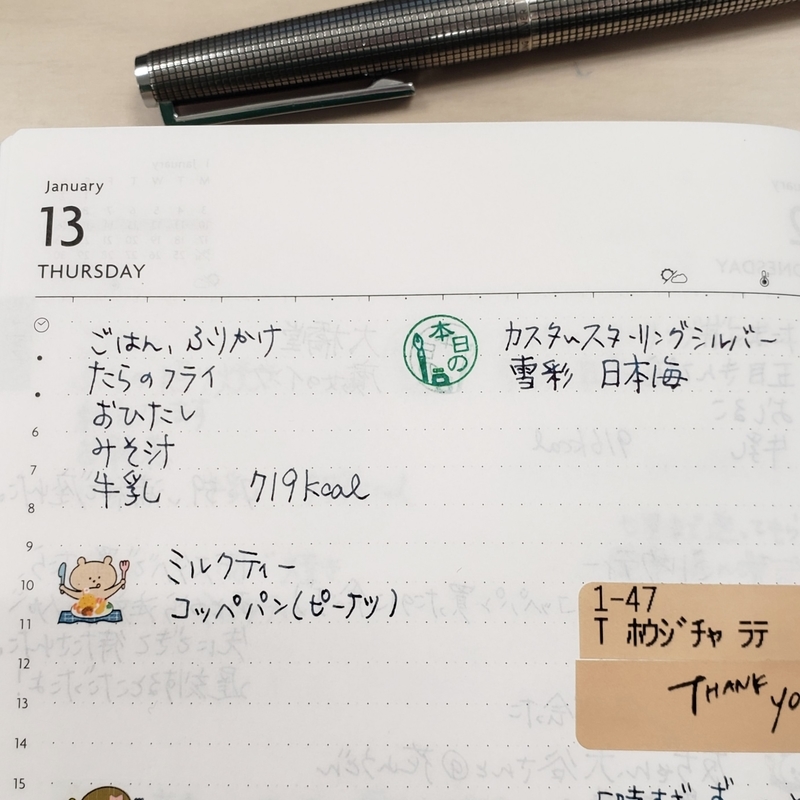 January
13
THURSDAY
ごはん, ふりかけ
たらのフライ
おひたし
みそ汁
牛乳 719kcal
本日の
カスタムスターリングシルバー
雪彩 日本海
6
7
8
9
10
11
12
13
14
15
ミルクティー
コッペパン(ピーナツ)
1-47
T ホウジチャ ラテ
THANK YO